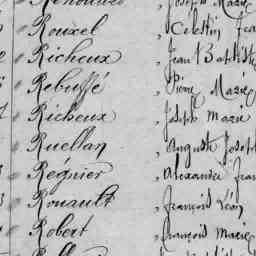 Rouxel, Célestin
Richeux, Jean Baptiste
Rebuffé, Pierre Marie
Richeux, Joseph Marie
Ruellan, Auguste Joseph
Régnier, Alexandre Jean
Rouault, François Léon
Robert, François Marie